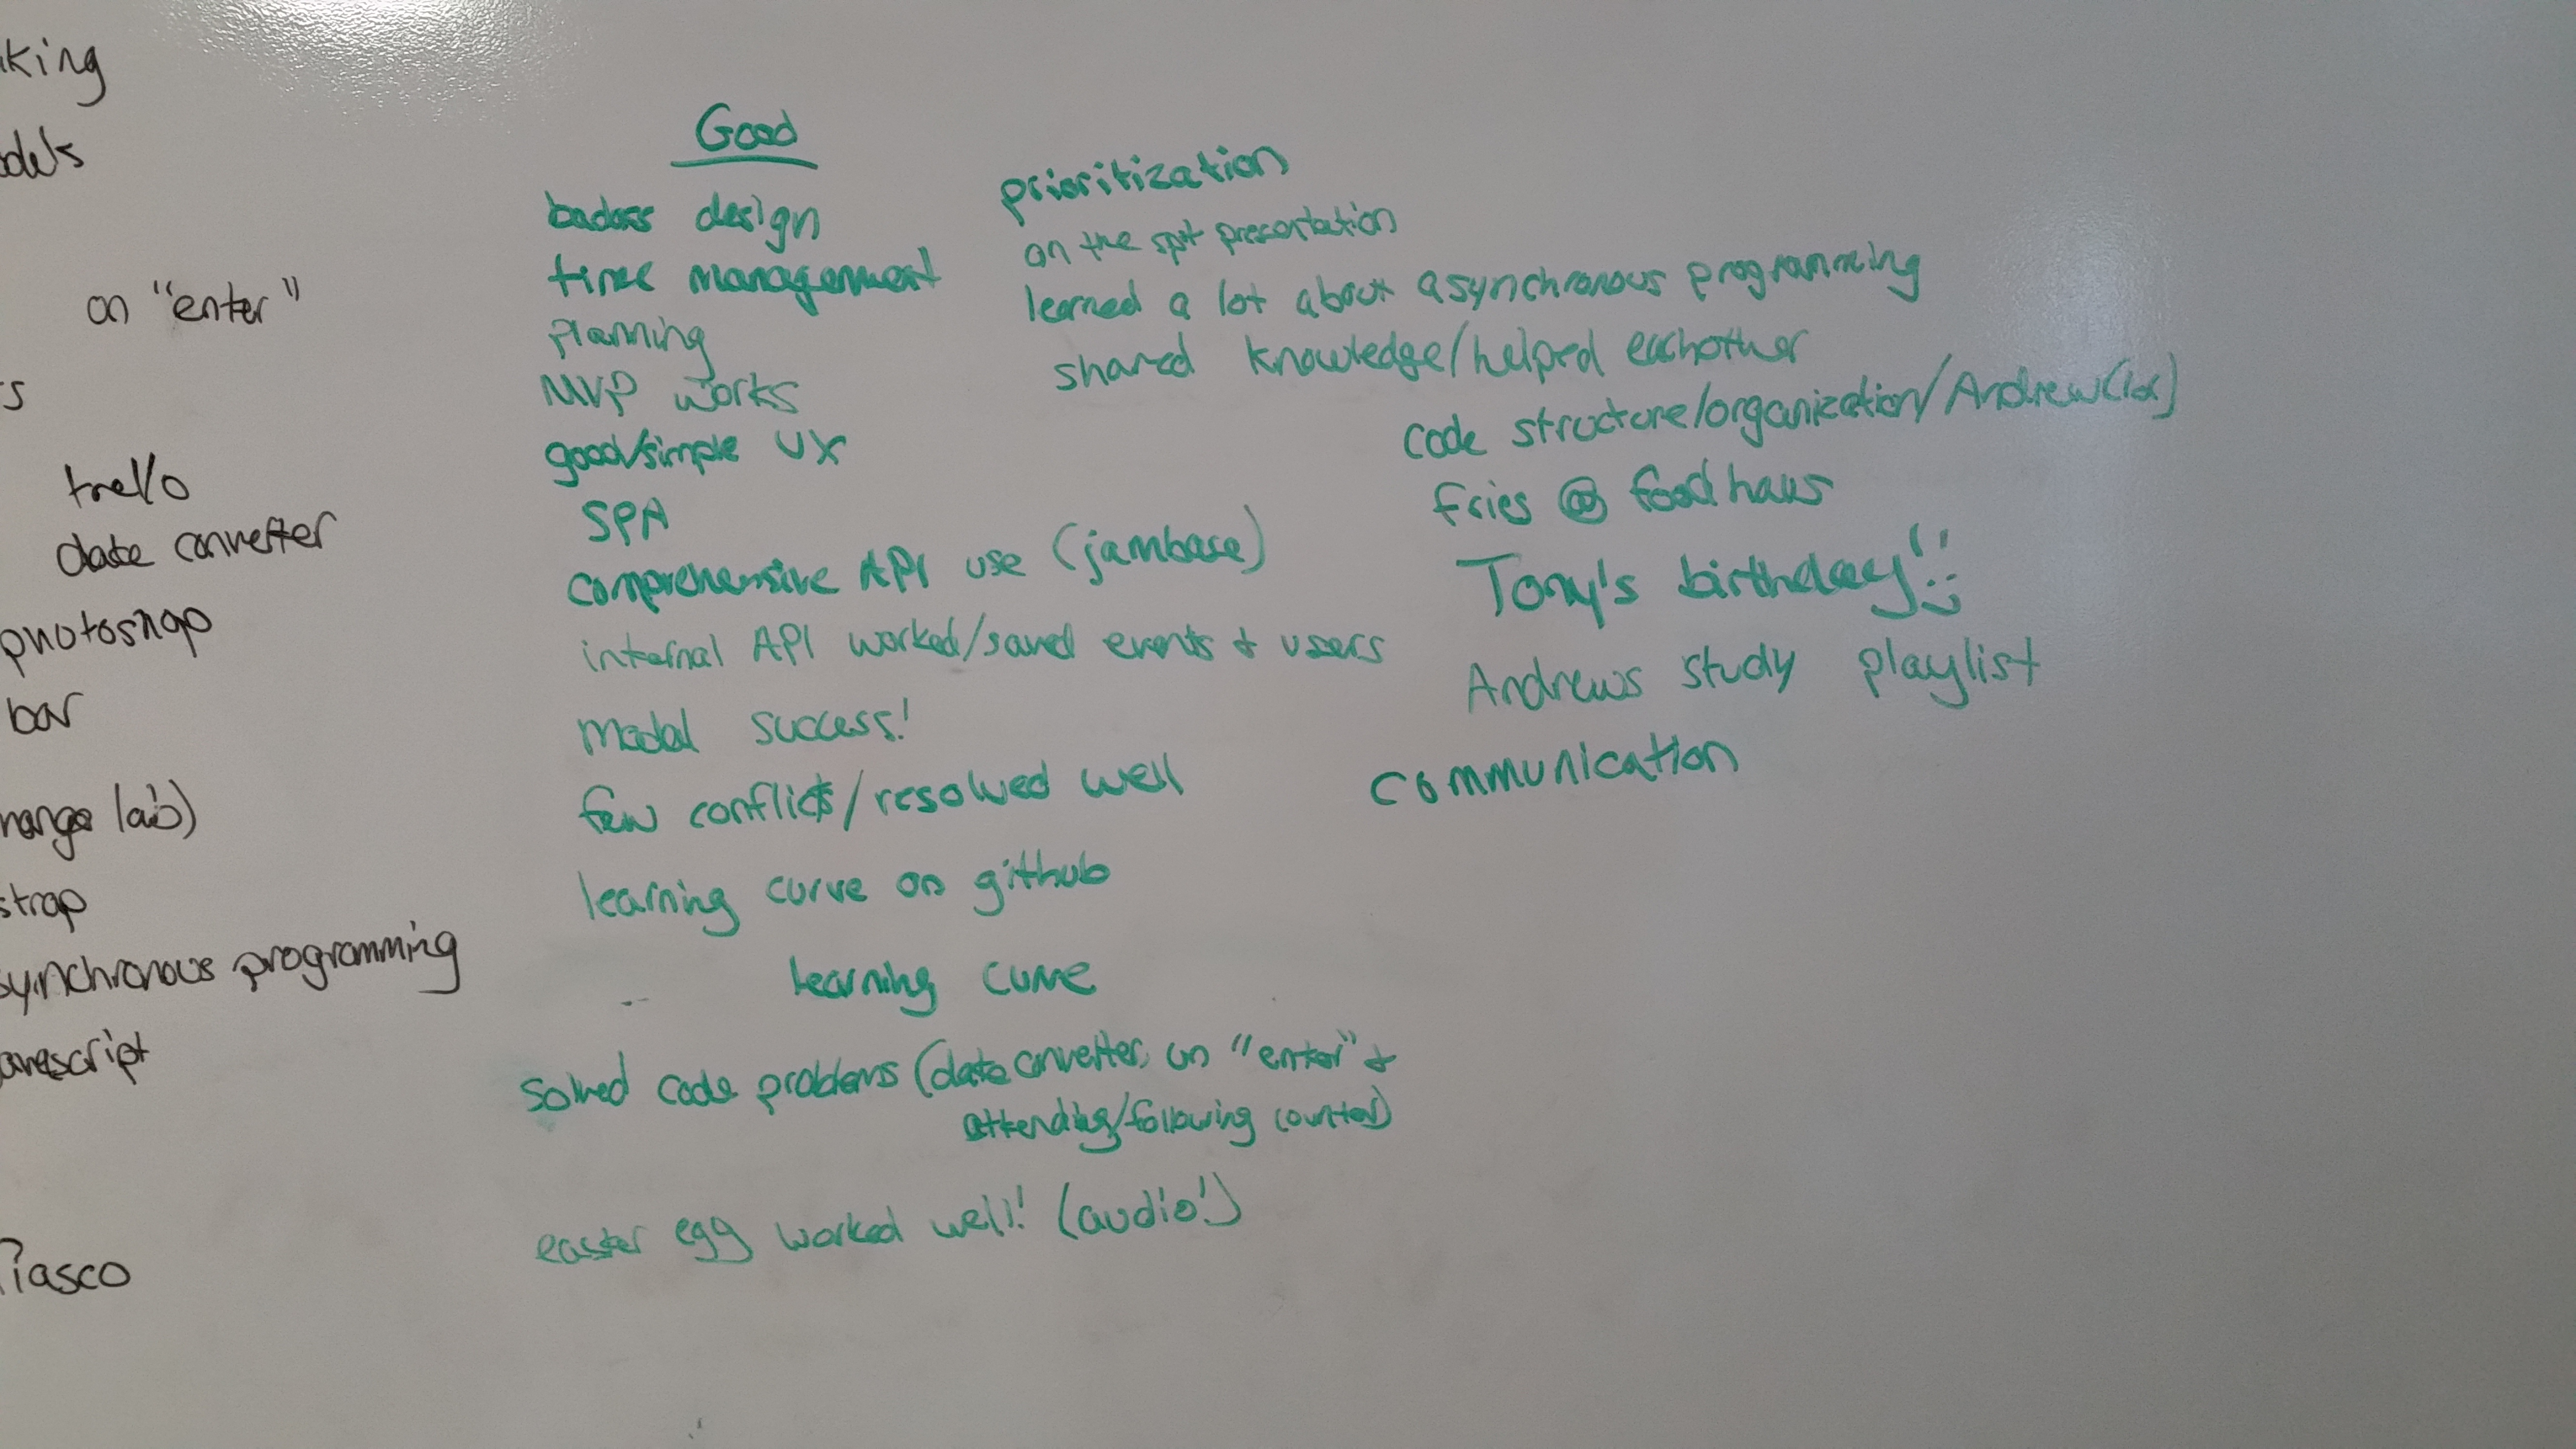 king
on "enter"
s
trello
date converter
photoshop
bar
lab)
strap
synchronous programming
script
fiasco
Good
badass design
time management
planning
MVP works
good/simple UX
SPA
comprehensive API use (jambase)
internal API worked/saved events + users
modal success!
few conflicts/resolved well
learning curve on github
learning curve
solved code problems (date converter, on "enter" +
attending/following counter)
easter egg worked well! (audio!)
prioritization
on the spot presentation
learned a lot about asynchronous programming
shared knowledge/helped eachother
code structure/organization/Andrew(lol)
fries @ foodhaus
Tony's birthday!!
Andrews study playlist
communication